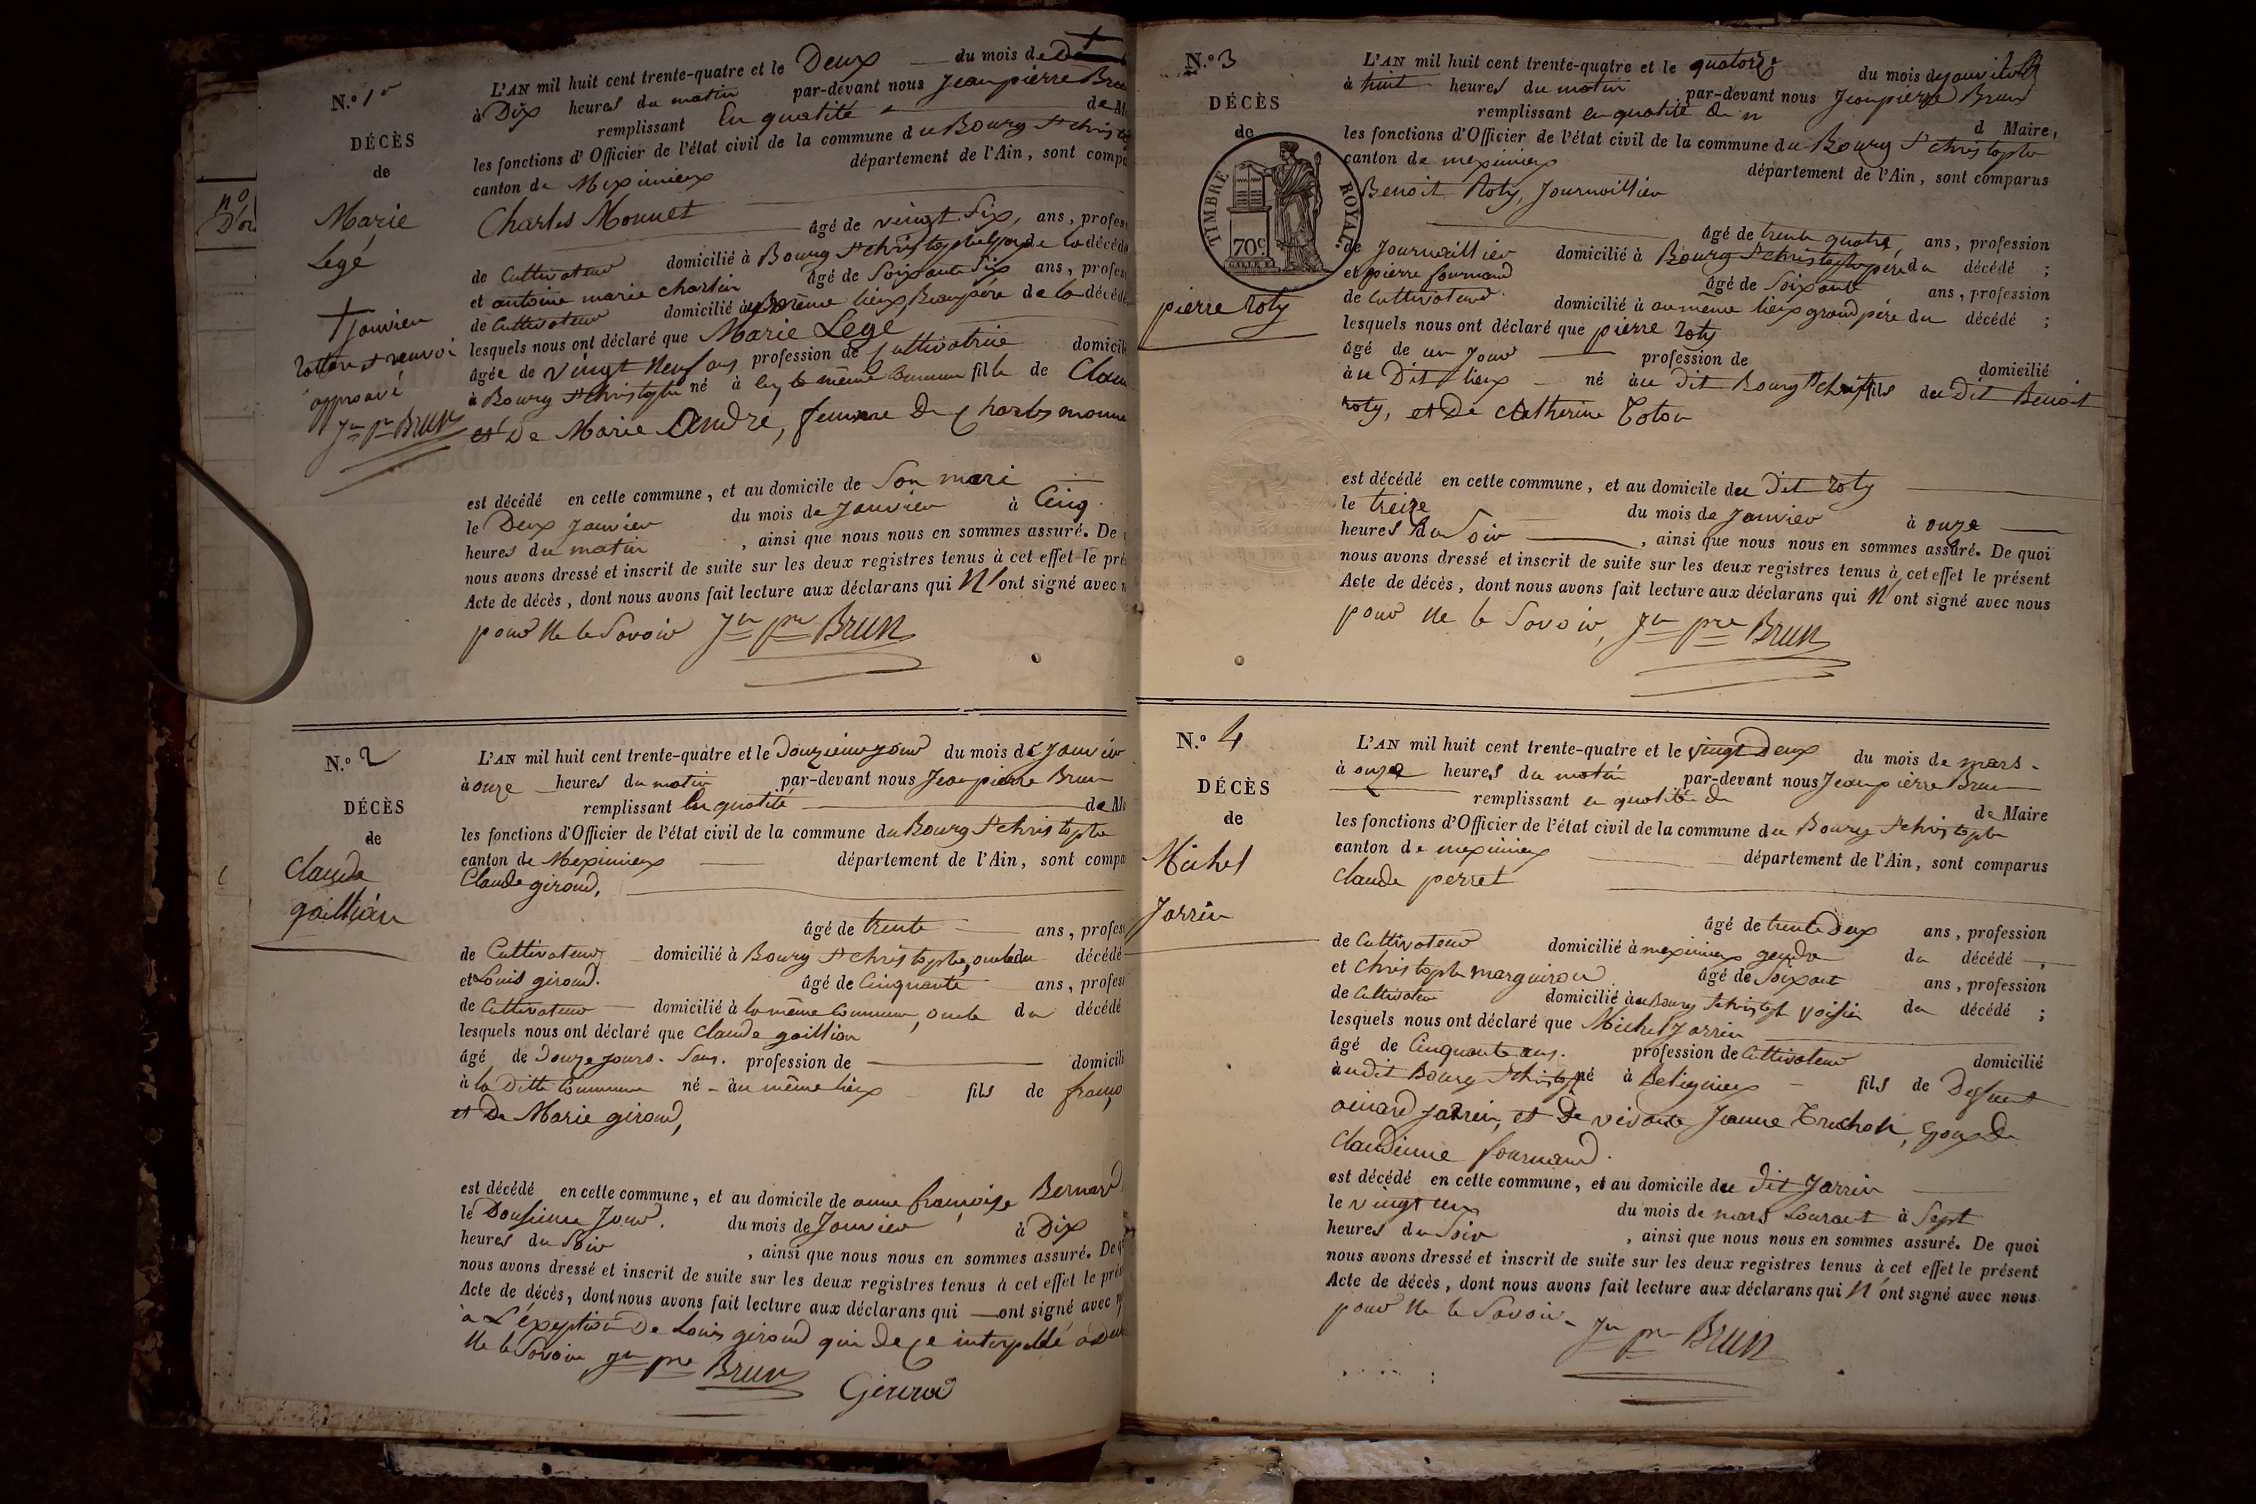 N.o 1er
DÉCÈS
de
Marie
Legé
† Janvier
approuvé
Jn pre BRUN
L'AN mil huit cent trente-quatre et le Deux du mois de
à Dix heures du matin par-devant nous Jean pierre Brun
remplissant En qualité de
les fonctions d'Officier de l'état civil de la commune du Bourg St christophe
canton de Meximieux département de l'Ain, sont comp
Charles Monnet
âgé de vingt Six, ans, profes
de Cultivateur domicilié à Bourg St christophe Epoux de la décédé
et antoine marie charlin âgé de Soixante Six ans, profes
de Cultivateur domicilié au même lieux, Beaupére de la décédé
lesquels nous ont déclaré que Marie Legé
âgée de vingt Neuf ans profession de Cultivatrice domicil
à Bourg St christophe né à la même Commune fille de Clau
et De Marie Andre, femme De Charles monne
est décédé en cette commune, et au domicile de Son mari
le Deux janvier du mois de Janvier à Cinq
heures du matin, ainsi que nous nous en sommes assuré. De
nous avons dressé et inscrit de suite sur les deux registres tenus à cet effet le pré
Acte de décès, dont nous avons fait lecture aux déclarans qui N'ont signé avec n
pour Ne le Savoir Jn pre BRUN
N.o 2
DÉCÈS
de
Claude
gaillian
L'AN mil huit cent trente-quatre et le Douzieme jour du mois de Janvier
à onze heures du matin par-devant nous Jean pierre Brun
remplissant En qualité de M
les fonctions d'Officier de l'état civil de la commune du Bourg St christophe
canton de Meximieux département de l'Ain, sont compa
Claude giroud,
âgé de trente ans, profes
de Cultivateur domicilié à Bourg St christophe, oncle du décédé
et Louis giroud. âgé de Cinquante ans, profes
de Cultivateur domicilié à la même Commune, oncle du décédé
lesquels nous ont déclaré que Claude gaillian
âgé de Douze jours. Sans. profession de domicili
à la Ditte Commune né au même lieux fils de franço
et De Marie giroud,
est décédé en cette commune, et au domicile de anne françoise Bernard
le Douzieme Jour. du mois de Janvier à Dix
heures du Soir, ainsi que nous nous en sommes assuré. De q
nous avons dressé et inscrit de suite sur les deux registres tenus à cet effet le prés
Acte de décès, dont nous avons fait lecture aux déclarans qui ont signé avec n
à L'exeption De Louis giroud qui De ce interpellé a
Ne le Savoir Jn pre BRUN
Giroud
N.o 3
DÉCÈS
de
TIMBRE ROYAL.
70c
pierre roty
L'AN mil huit cent trente-quatre et le quatorze du mois de janvier
à huit heures du matin par-devant nous Jean pierre Brun
remplissant en qualité de d Maire,
les fonctions d'Officier de l'état civil de la commune du Bourg St christophe
canton de meximieux département de l'Ain, sont comparus
Benoit Roty, Journaillier
âgé de trente quatre, ans, profession
de Journaillier domicilié à Bourg St christophe père du décédé;
et pierre fournand âgé de Soixante ans, profession
de Cultivateur. domicilié à au même lieux grand pére du décédé;
lesquels nous ont déclaré que pierre roty
âgé de un Jour profession de domicilié
au Dit lieux né au dit Bourg St christ fils du Dit Benoit
roty, et De Catherine
est décédé en cette commune, et au domicile du Dit roty
le treize du mois de Janvier à onze
heures du Soir, ainsi que nous nous en sommes assuré. De quoi
nous avons dressé et inscrit de suite sur les deux registres tenus à cet effet le présent
Acte de décès, dont nous avons fait lecture aux déclarans qui N'ont signé avec nous
pour Ne le Savoir, Jn pre BRUN
N.o 4
DÉCÈS
de
Michel
Jarrin
L'AN mil huit cent trente-quatre et le vingt Deux du mois de mars
à onze heures du matin par-devant nous Jean pierre Brun
remplissant en qualité de de Maire
les fonctions d'Officier de l'état civil de la commune du Bourg St christophe
canton de meximieux département de l'Ain, sont comparus
Claude perret
âgé de trente Deux ans, profession
de Cultivateur domicilié à meximieux gendre du décédé;
et Christophe marguiron âgé de Soixant ans, profession
de Cultivateur domicilié au Bourg St christoph voisin du décédé;
lesquels nous ont déclaré que Michel Jarrin
âgé de Cinquante ans. profession de Cultivateur domicilié
au dit Bourg St christoph né à Beligneux fils de Deffunt
Jarrin, et De vivante Jeanne Truchon, Epoux De
Claudinne fournand.
est décédé en cette commune, et au domicile du Dit Jarrin
le vingt un du mois de mars Courant à Sept
heures du Soir, ainsi que nous nous en sommes assuré. De quoi
nous avons dressé et inscrit de suite sur les deux registres tenus à cet effet le présent
Acte de décès, dont nous avons fait lecture aux déclarans qui N'ont signé avec nous
pour Ne le Savoir. Jn pre BRUN